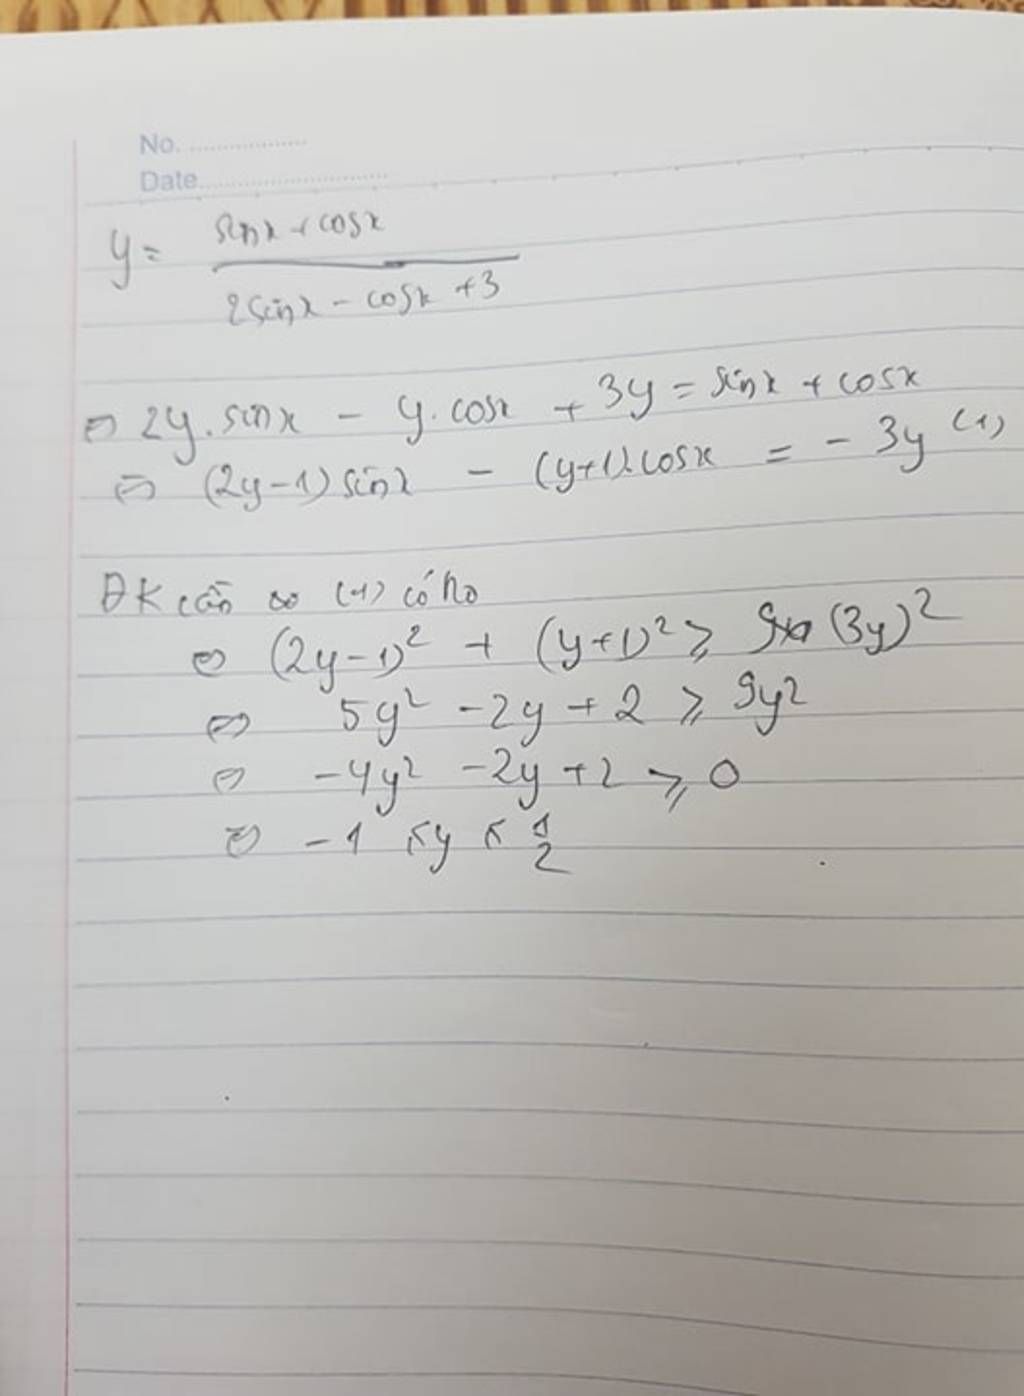 No. ................
Date................
y = (sinx + cosx) / (2sinx - cosx + 3)
⇔ 2y.sinx - y.cosx + 3y = sinx + cosx
⇔ (2y-1) sinx - (y+1).cosx = -3y (1)
ĐK cần (1) có no
⇔ (2y-1)² + (y+1)² ≥ (3y)²
⇔ 5y² - 2y + 2 ≥ 9y²
⇔ -4y² - 2y + 2 ≥ 0
⇔ -1 ≤ y ≤ 1/2